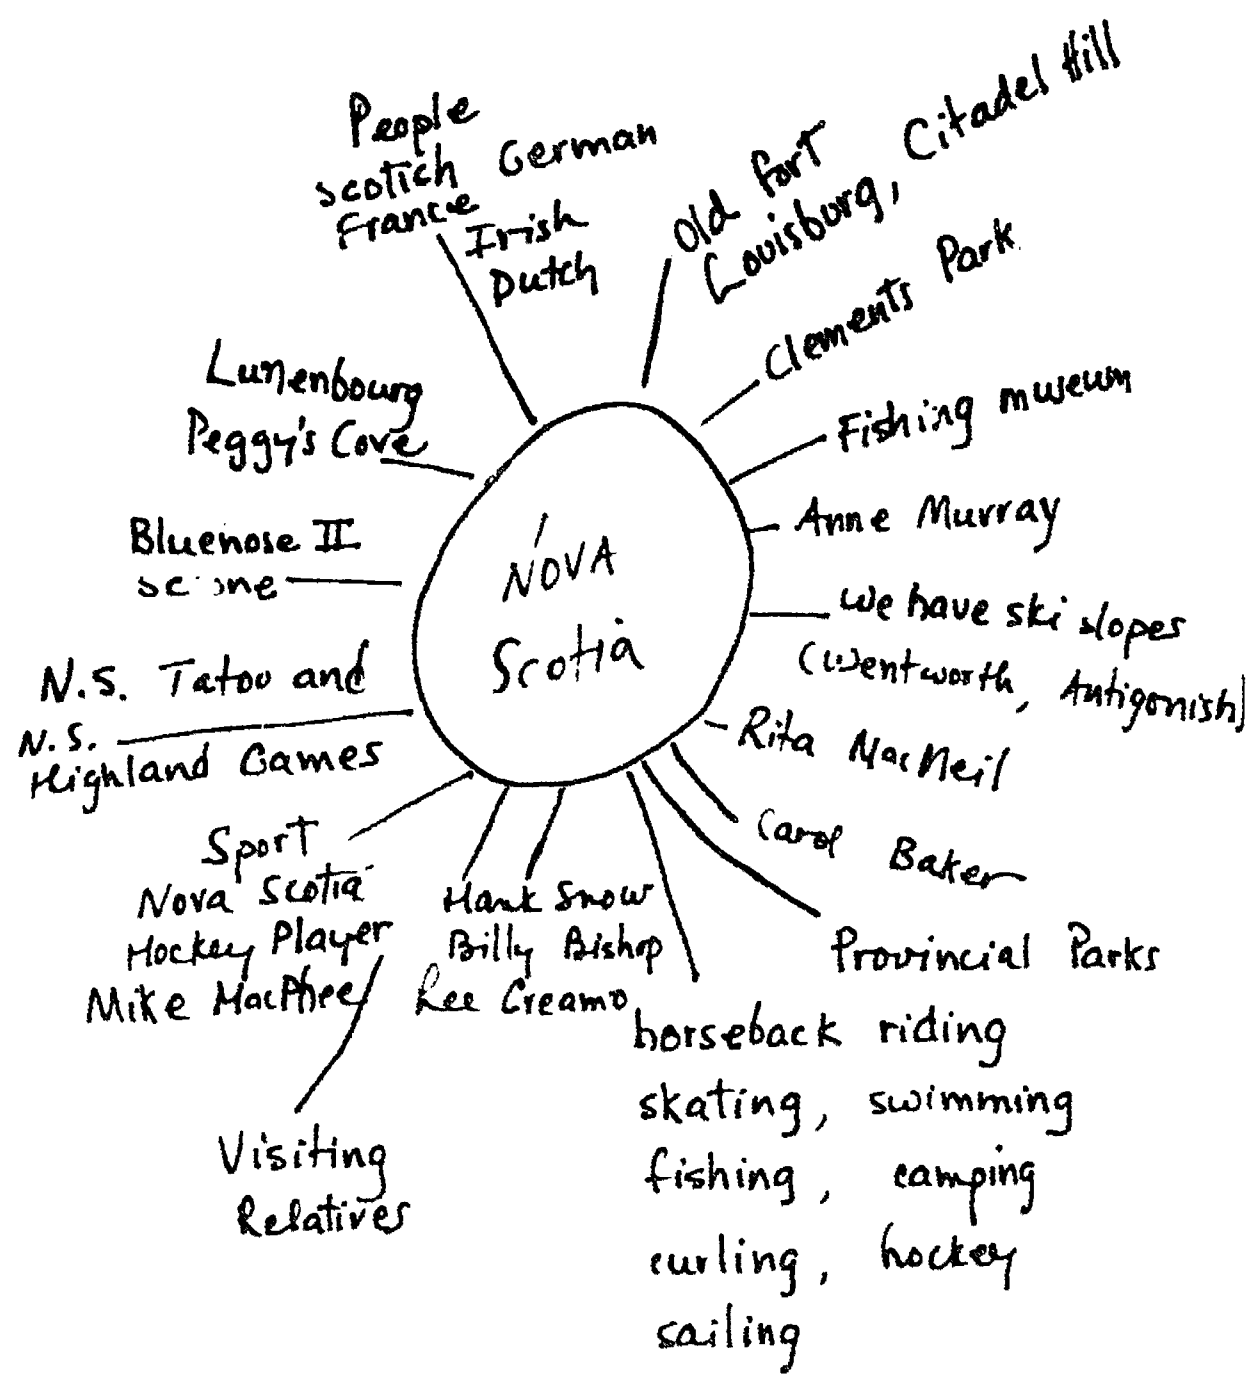 NOVA
Scotia
People
Scotich German
France Irish
Dutch
Old Fort
Louisburg, Citadel Hill
Clements Park
Fishing museum
Anne Murray
We have ski slopes
(Wentworth, Antigonish)
Rita MacNeil
Carol Baker
Provincial Parks
horseback riding
skating, swimming
fishing, camping
curling, hockey
sailing
Hank Snow
Billy Bishop
Lee Creamo
Sport
Nova Scotia
Hockey Player
Mike MacPhee
Visiting
Relatives
N.S. Tatoo and
N.S.
Highland Games
Bluenose II
Lunenbourg
Peggy's Cove